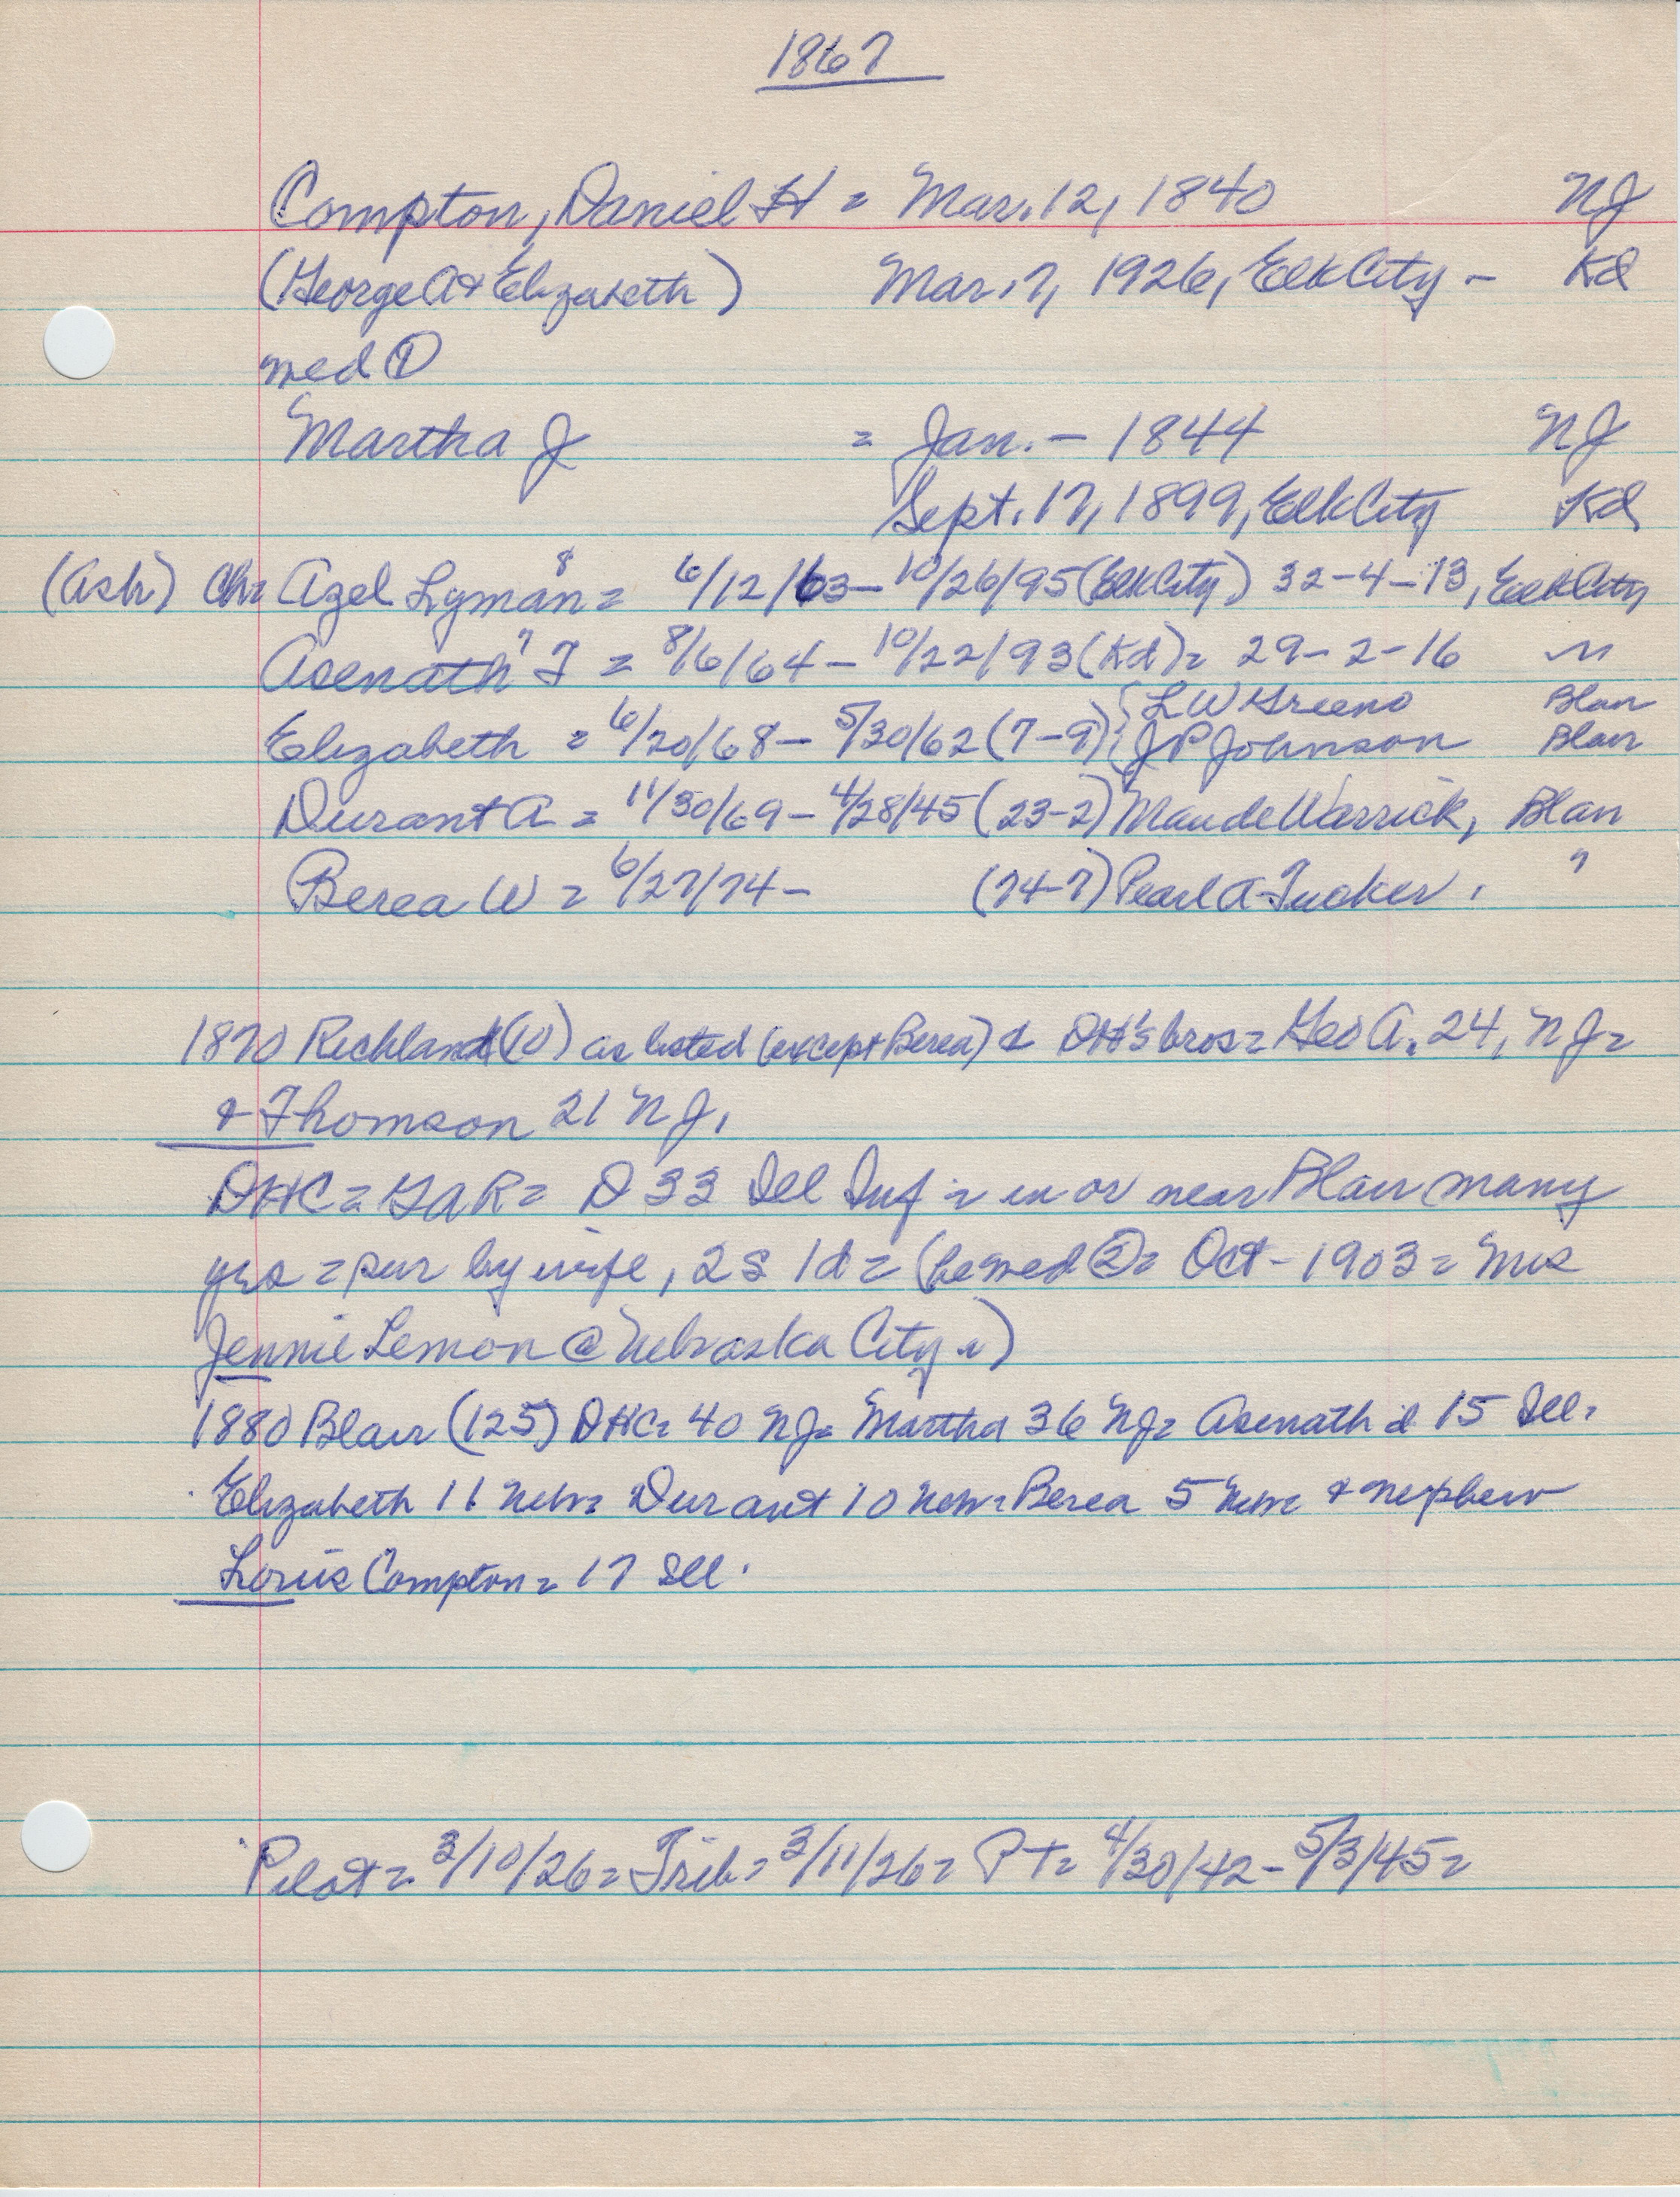 1867
Compton, Daniel H = Mar. 12, 1840 NJ
(George A & Elizabeth) Mar. 7, 1926, Elk City - Kd
med ①
Martha J = Jan. - 1844 NJ
Sept. 17, 1899, Elk City Kd
(Ash) Ch= Azel Lyman = 6/12/63 - 10/26/95 (Elk City) 32-4-13, Elk City
Asenath " J = 8/6/64 - 10/22/93 (Kd) = 29-2-16 "
Elizabeth = 6/20/68 - 5/30/62 (7-9) { L W Greeno Blair
J P Johnson Blair
Durant A = 11/30/69 - 4/28/45 (23-2) Maude Warrick, Blair
Berea W = 6/27/74 - (74-7) Pearl A Tucker, "
1870 Richland (10) as listed (except Berea) & DH's bros = Geo A. 24, NJ =
& Thomson 21 NJ.
DHC = GAR = D 33 Ill Inf = in or near Blair many
yrs = sur by wife, 2s 1d = (he med ② = Oct - 1903 = Mrs
Jennie Lemon @ Nebraska City =)
1880 Blair (125) DHC = 40 NJ = Martha 36 NJ = Asenath d 15 Ill.
Elizabeth 11 Neb = Durant 10 Neb = Berea 5 Neb = & nephew
Louis Compton = 17 Ill.
Pilot = 3/10/26 = Trib = 3/11/26 = PT = 4/30/42 - 5/3/45 =